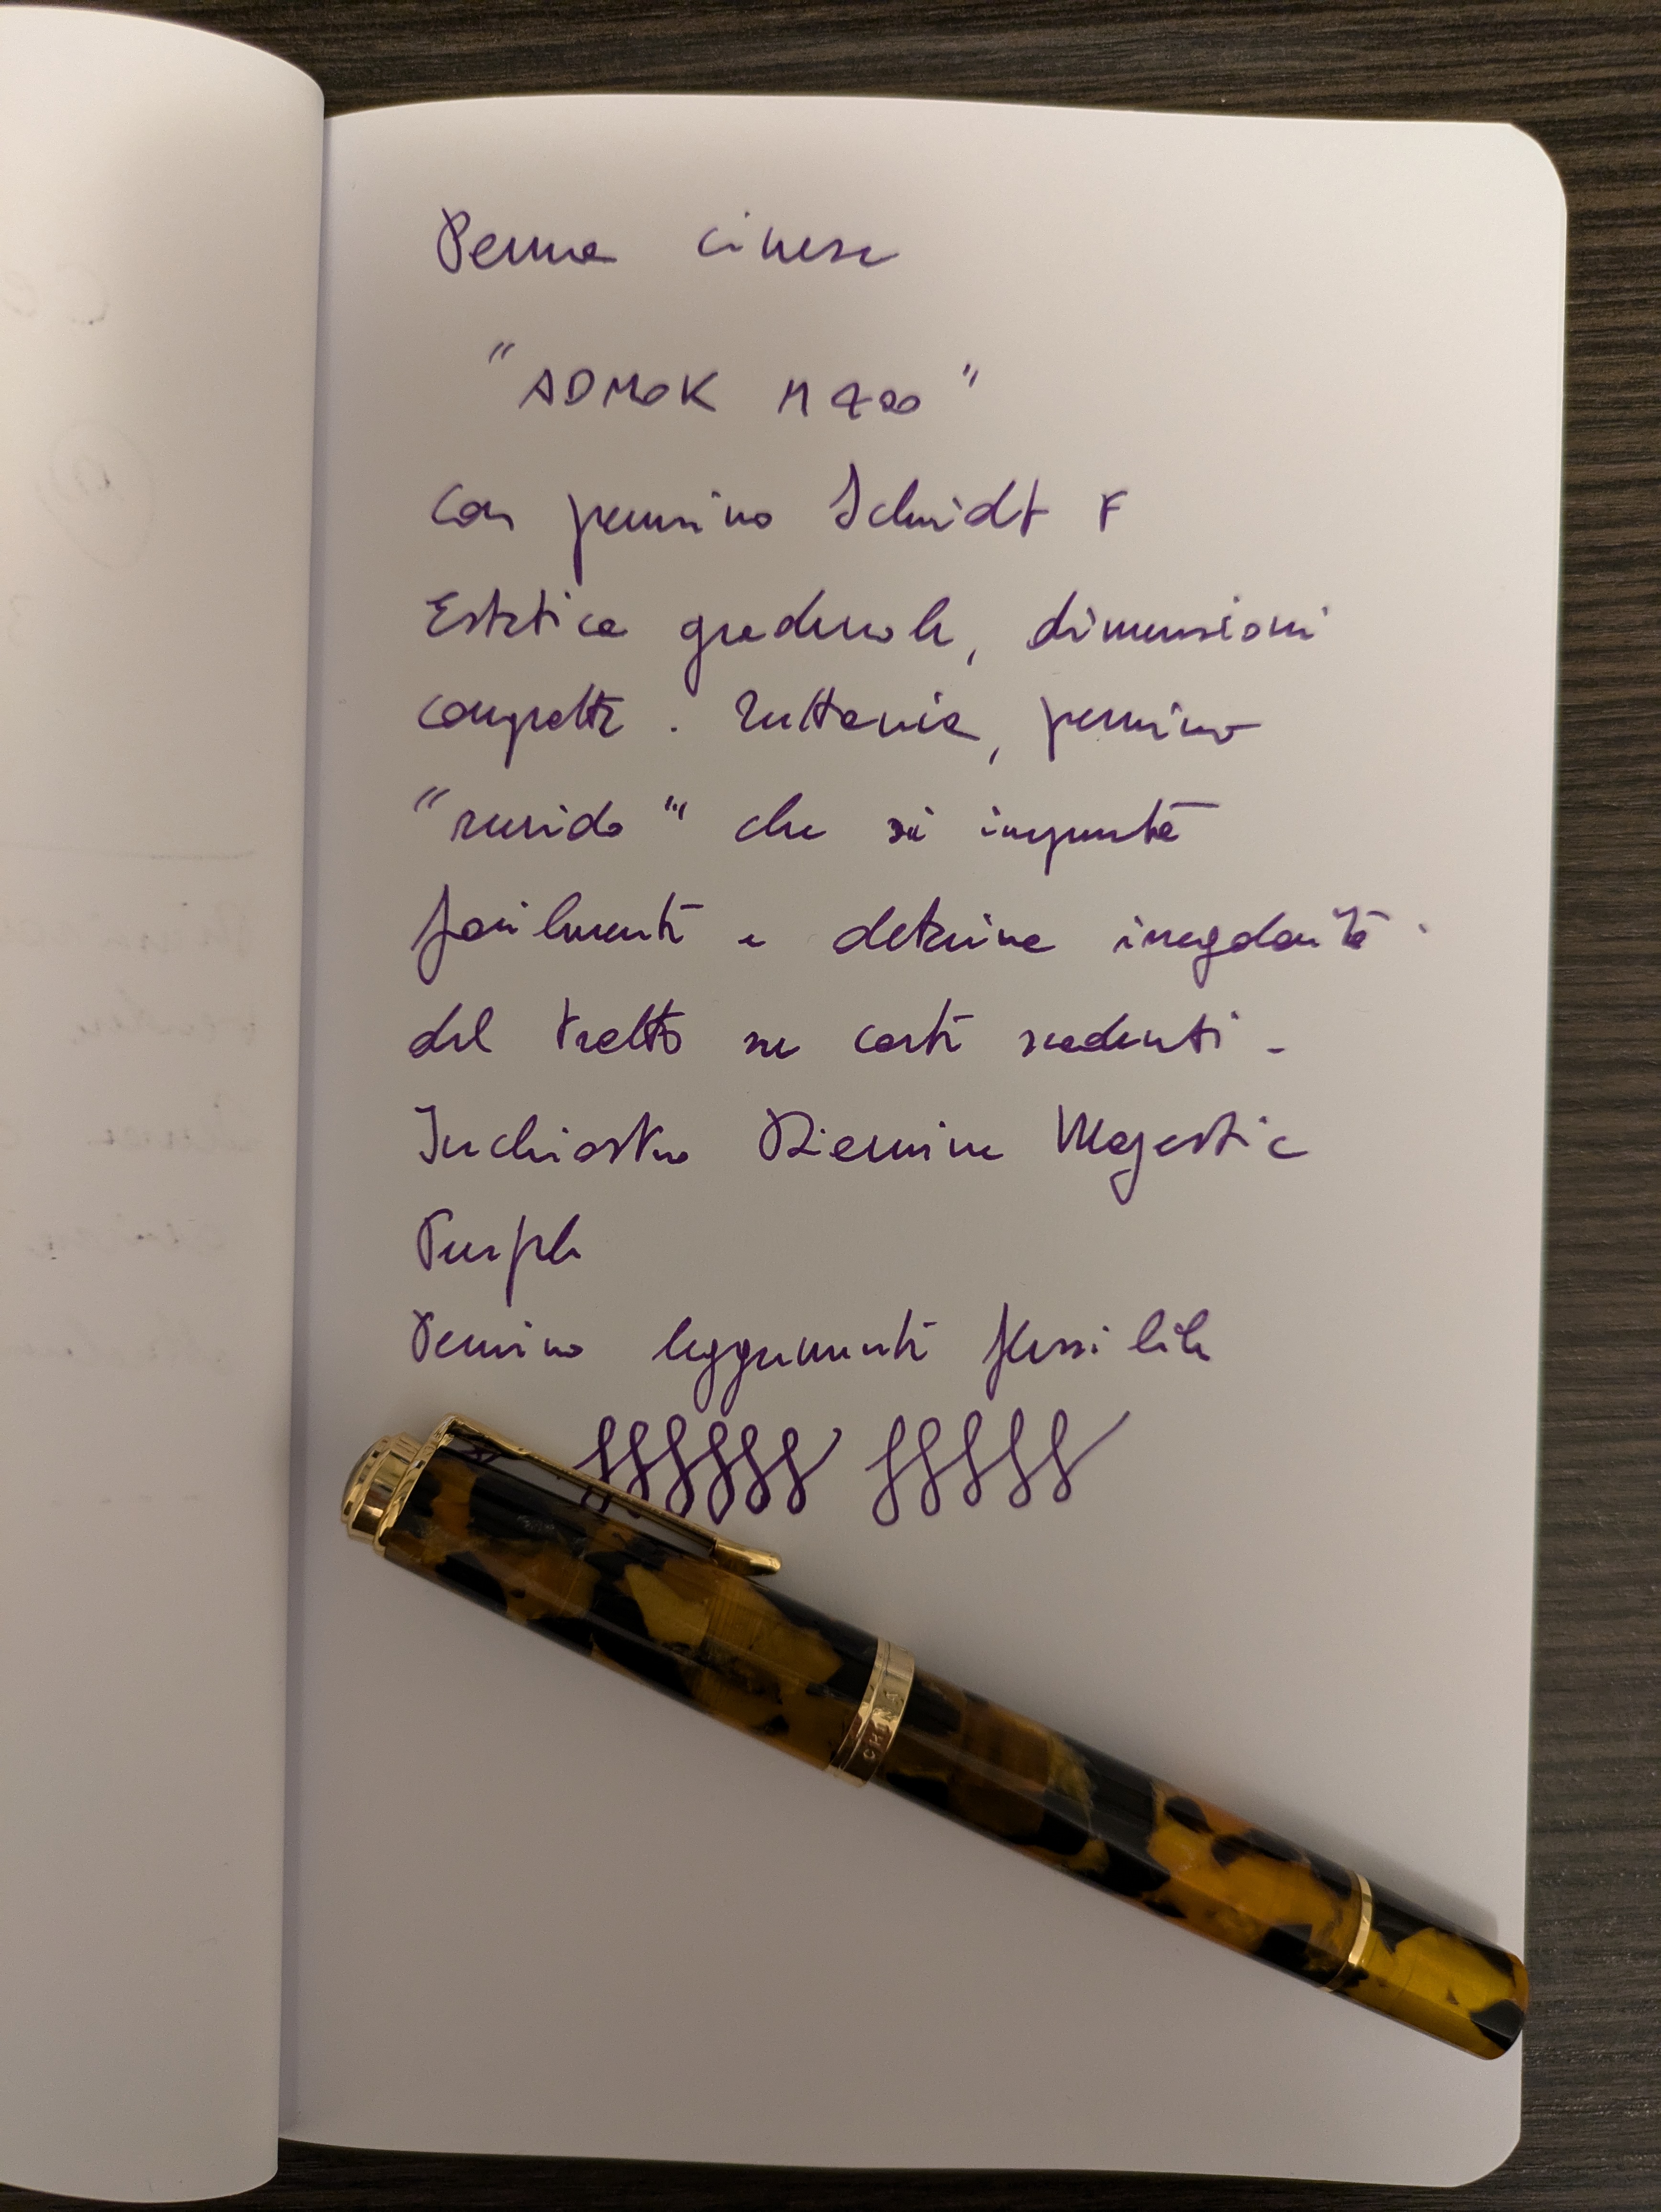 Penna cinese
"ADMOK M800"
con pennino Schmidt F
Estetica gradevole, dimensioni
compatte. Tuttavia, pennino
"ruvido" che si impunta
facilmente e determina irregolarità
del tratto su carte scadenti.
Inchiostro Diamine Majestic
Purple
Pennino leggermente flessibile
CHINA